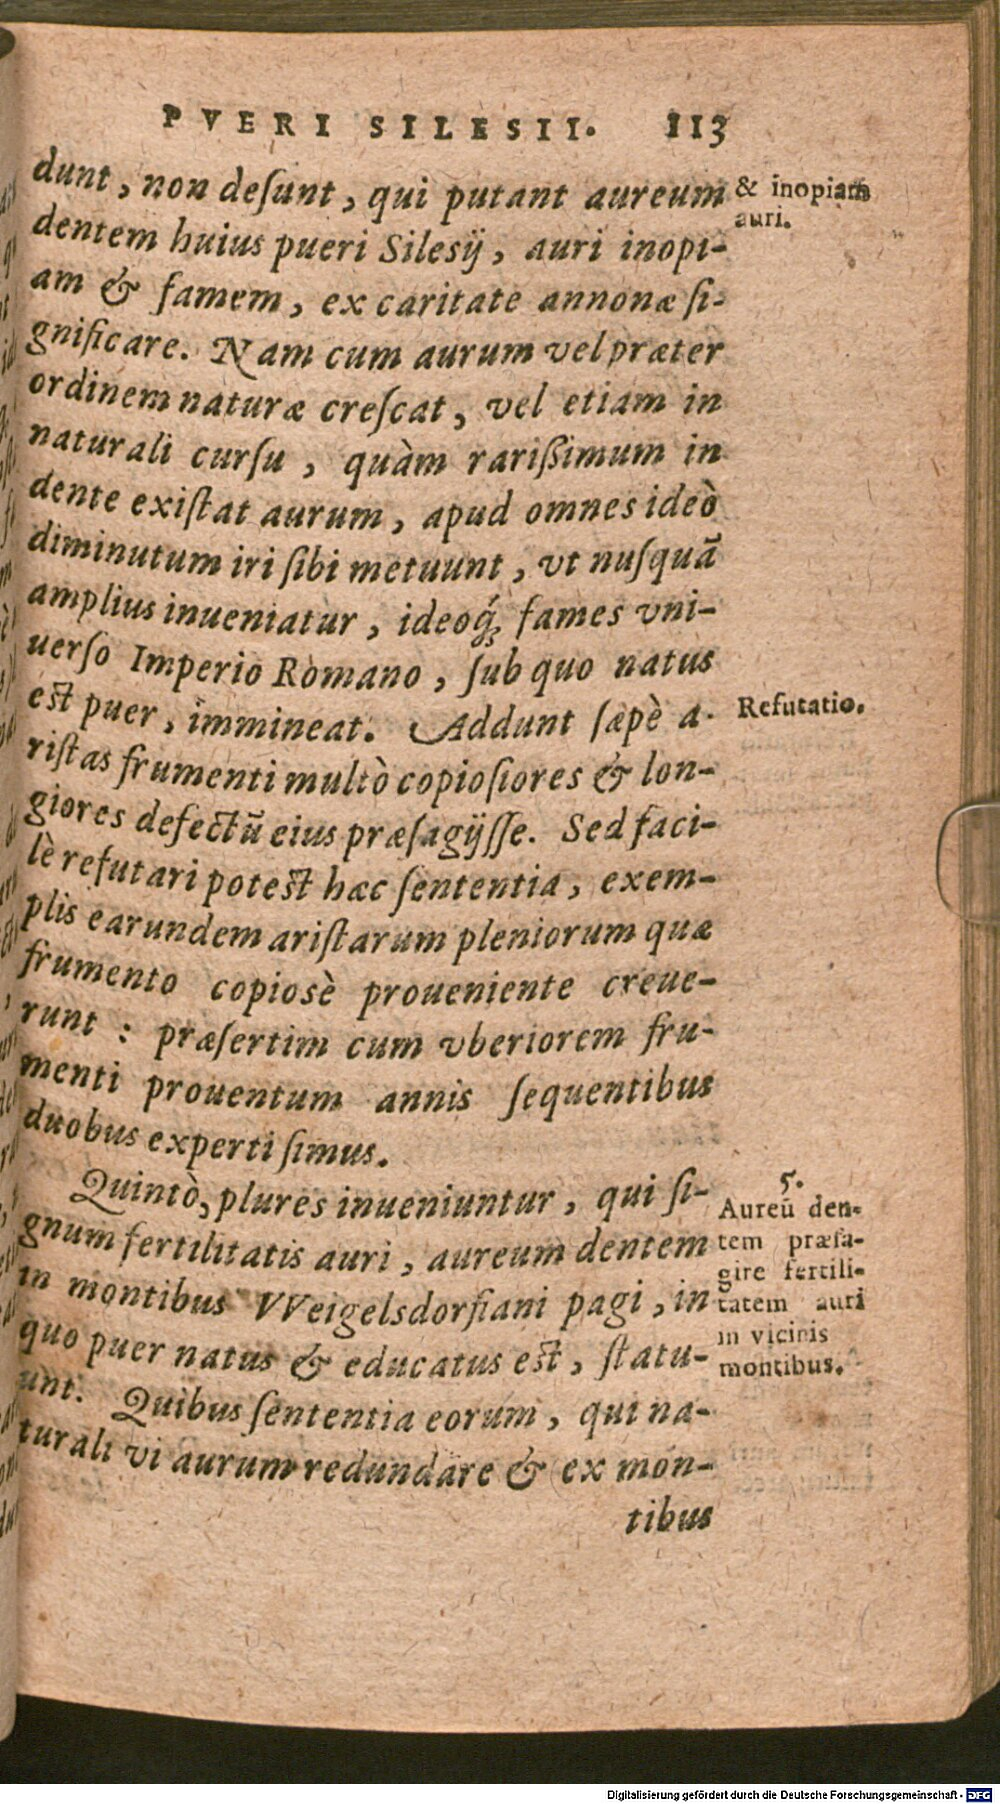 PVERI SILESII. 113
dunt, non deſunt, qui putant aureum
dentem huius pueri Sileſij, auri inopi-
am & famem, ex caritate annonæ ſi-
gnificare. Nam cum aurum vel præter
ordinem naturæ creſcat, vel etiam in
naturali curſu, quàm rariſsimum in
dente exiſtat aurum, apud omnes ideò
diminutum iri ſibi metuunt, vt nuſquā
amplius inueniatur, ideoq́; fames vni-
uerſo Imperio Romano, ſub quo natus
eſt puer, immineat. Addunt ſæpè a-
riſtas frumenti multò copioſiores & lon-
giores defectū eius præſagijſſe. Sed faci-
lè refutari poteſt hæc ſententia, exem-
plis earundem ariſtarum pleniorum quæ
frumento copiosè proueniente creue-
runt: præſertim cum vberiorem fru-
menti prouentum annis ſequentibus
duobus experti ſimus.
Quintò, plures inueniuntur, qui ſi-
gnum fertilitatis auri, aureum dentem
in montibus VVeigelsdorfiani pagi, in
quo puer natus & educatus eſt, ſtatu-
unt. Quibus ſententia eorum, qui na-
turali vi aurum redundare & ex mon-
tibus
& inopiam
auri.
Refutatio.
5.
Aureū den-
tem præſa-
gire fertili-
tatem auri
in vicinis
montibus.
Digitalisierung gefördert durch die Deutsche Forschungsgemeinschaft - DFG